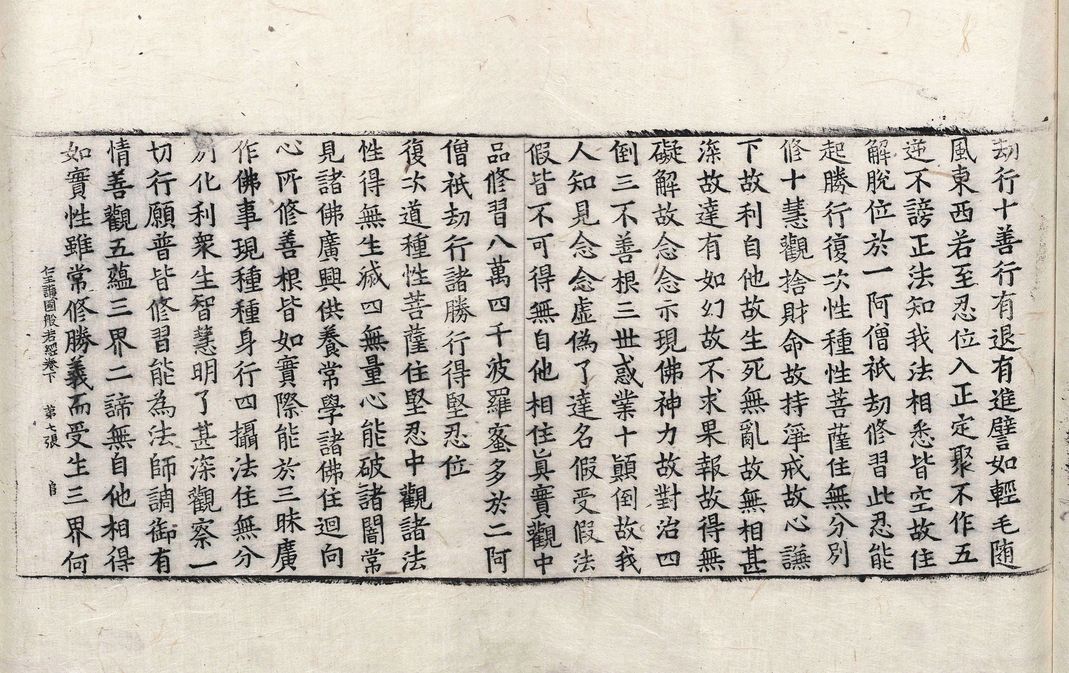 劫行十善行有退有進譬如輕毛隨
風東西若至忍位入正定聚不作五
逆不謗正法知我法相悉皆空故住
解脫位於一阿僧祇劫修習此忍能
起勝行復次性種性菩薩住無分別
修十慧觀捨財命故持淨戒故心謙
下故利自他故生死無亂故無相甚
深故達有如幻故不求果報故得無
礙解故念念示現佛神力故對治四
倒三不善根三世惑業十顚倒故我
人知見念念虛僞了達名假受假法
假皆不可得無自他相住眞實觀中
品修習八萬四千波羅蜜多於二阿
僧祇劫行諸勝行得堅忍位
復次道種性菩薩住堅忍中觀諸法
性得無生滅四無量心能破諸闇常
見諸佛廣興供養常學諸佛住迴向
心所修善根皆如實際能於三昧廣
作佛事現種種身行四攝法住無分
別化利衆生智慧明了甚深觀察一
切行願普皆修習能為法師調御有
情善觀五蘊三界二諦無自他相得
如實性雖常修勝義而受生三界何
仁王護國般若經卷下 第七張 官